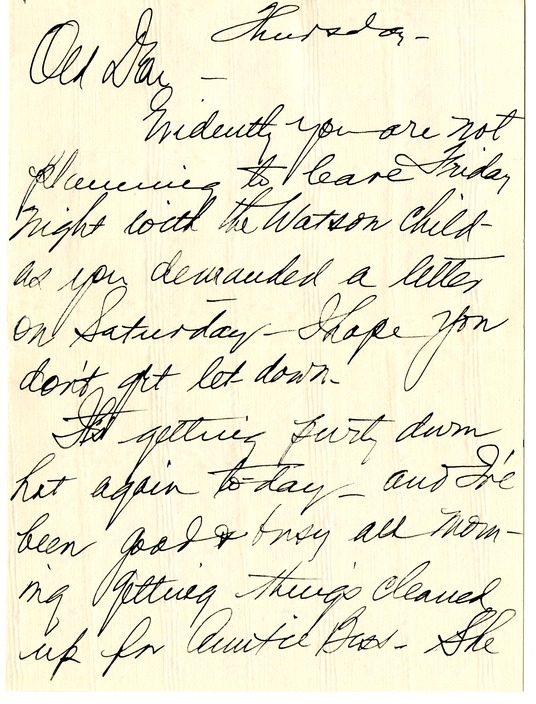 Thursday -
Old Dear -
Evidently you are not
planning to leave Friday
night with the Watson child -
as you demanded a letter
on Saturday - I hope you
don't get let down.
It's getting purty durn
hot again to-day - and I've
been good & busy all morn-
ing getting things cleaned
up for Auntie Buss - She